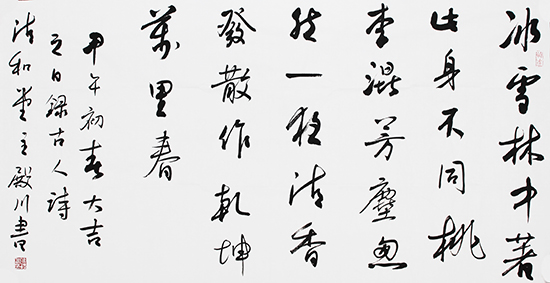 冰雪林中著
此身不同桃
李混芳塵忽
然一夜清香
發散作乾坤
萬里春
甲午初春大吉
之日録古人詩
清和堂主殿川書